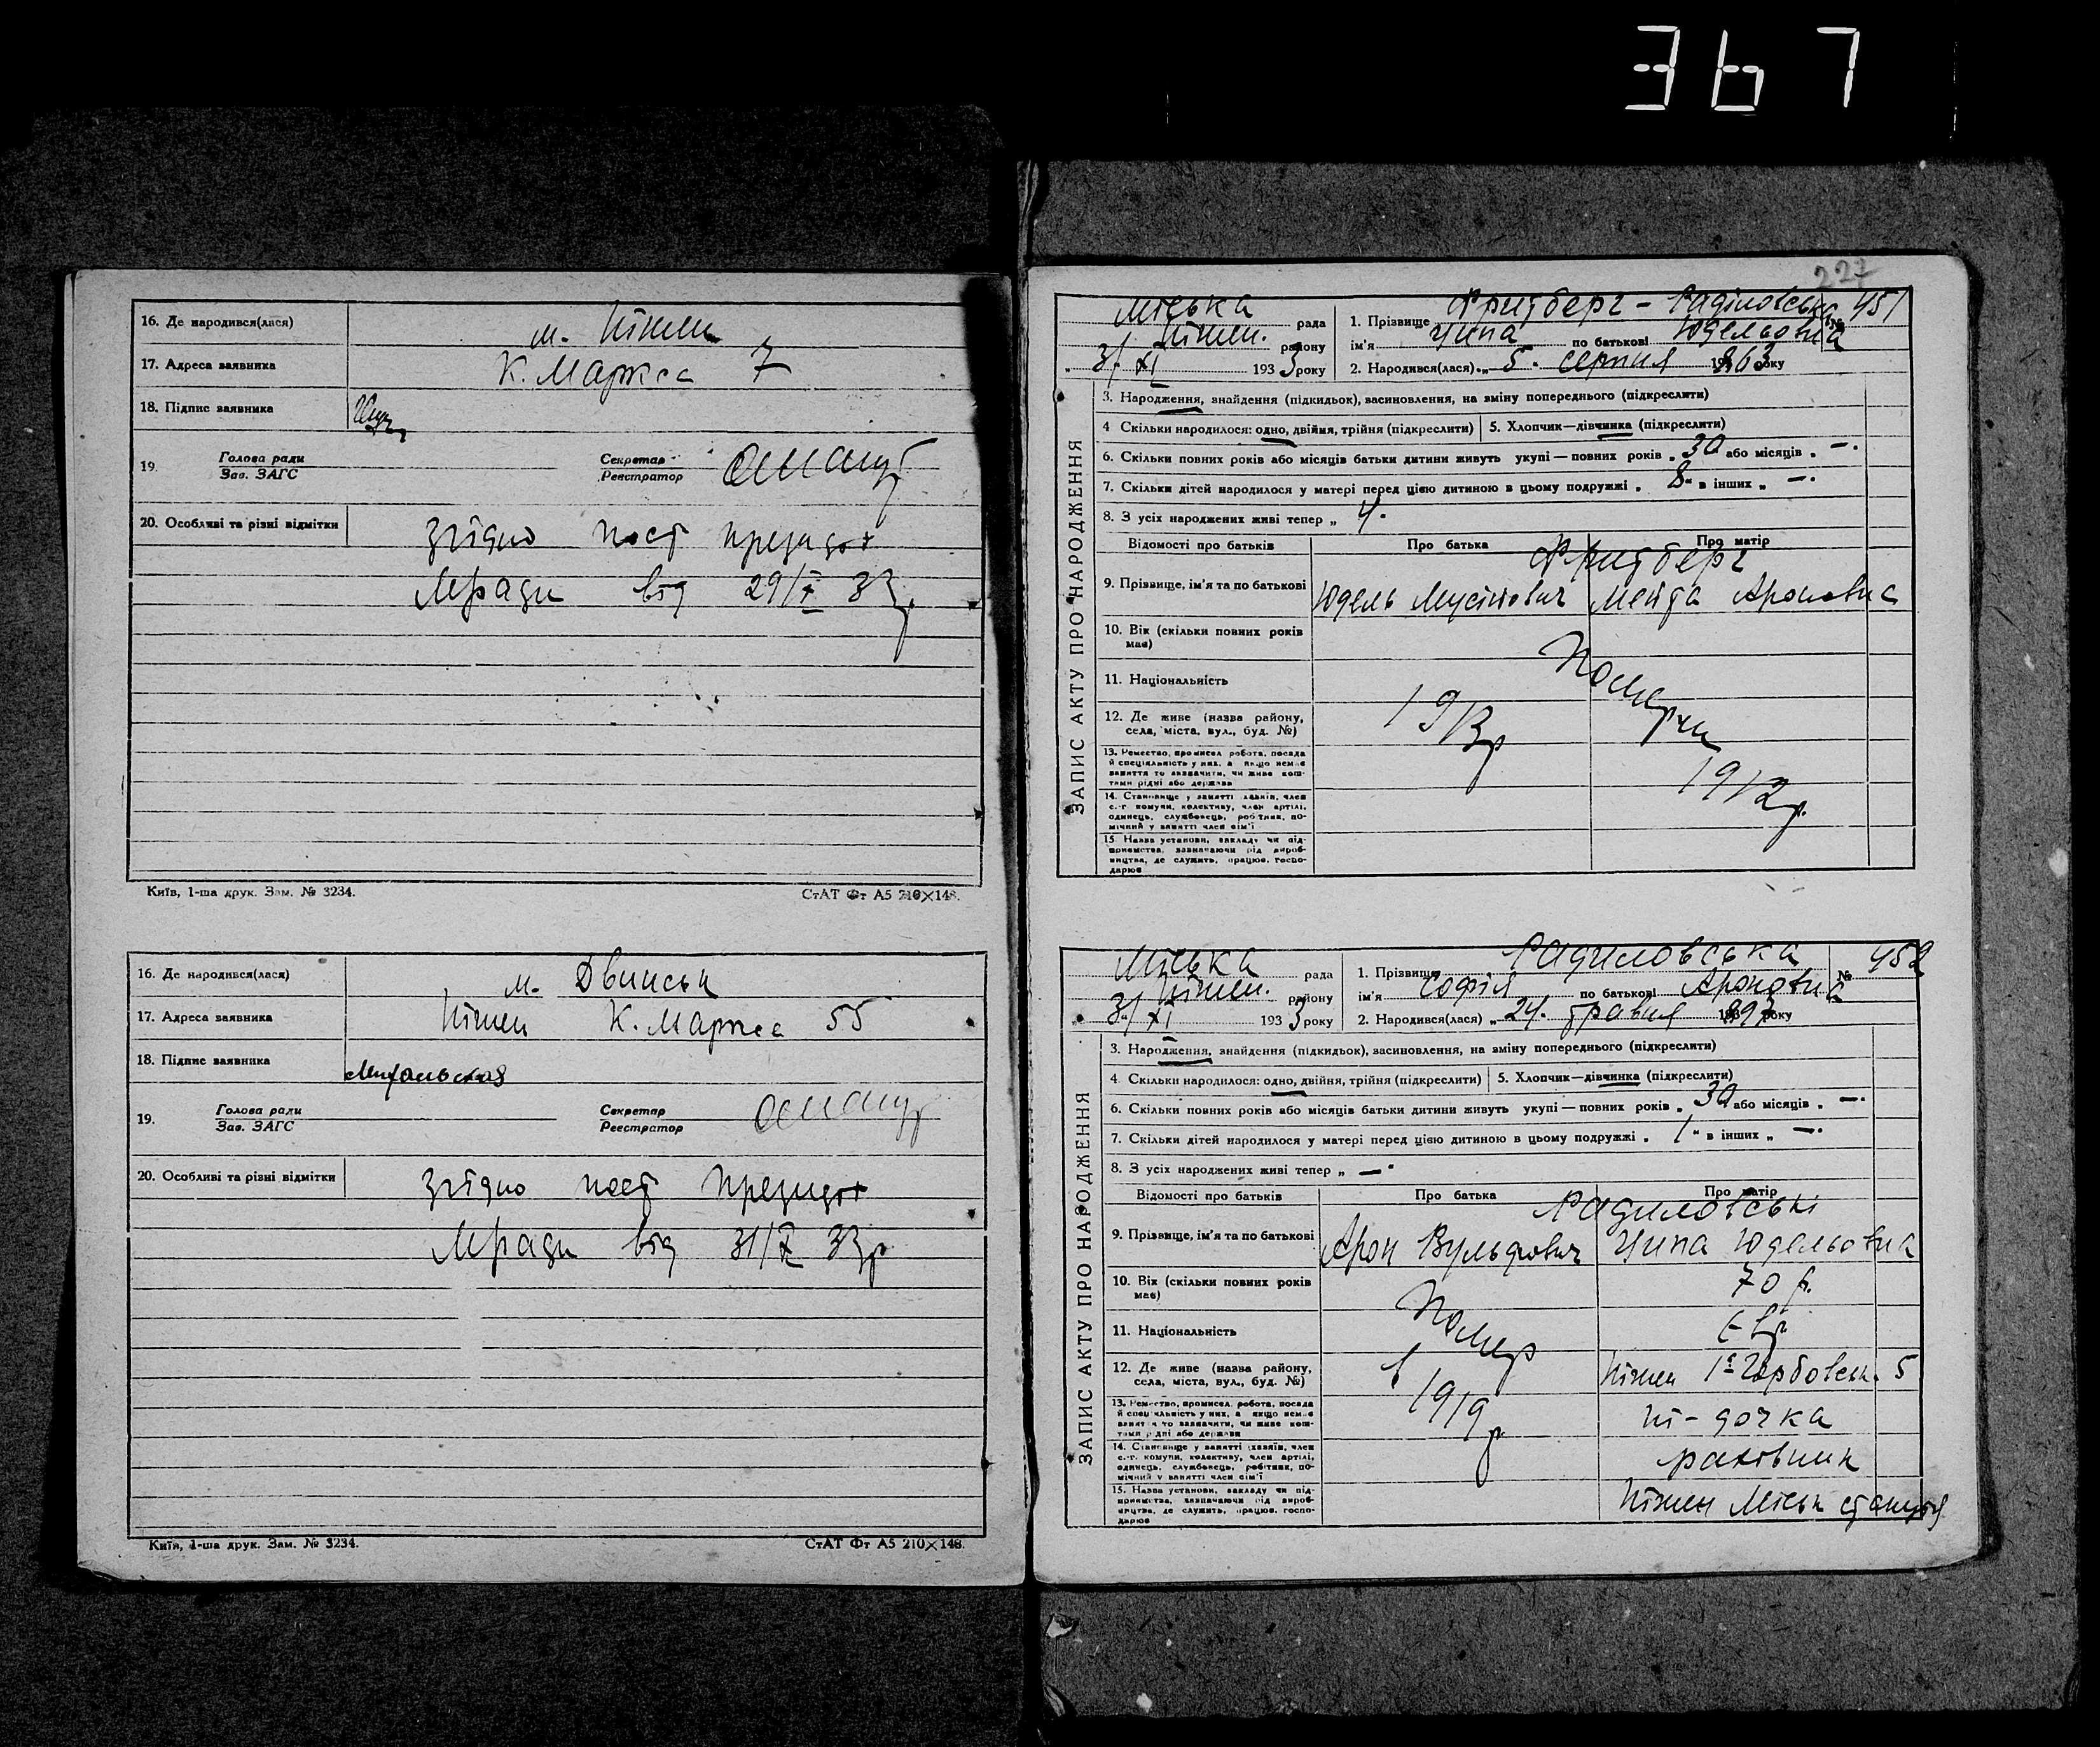 367
16. Де народився(лася) м. Ніжен
17. Адреса заявника К. Маркса 7
18. Підпис заявника
19. Голова ради Зав. ЗАГС Секретар Реєстратор
20. Особливі та різні відмітки Згідно пост президії
Мради від 29/X 33р.
Київ, 1-ша друк. Зам. № 3234. СтАТ Фт А5 210×148.
16. Де народився(лася) м. Двинськ
17. Адреса заявника Ніжен К. Маркса 55
18. Підпис заявника
19. Голова ради Зав. ЗАГС Секретар Реєстратор
20. Особливі та різні відмітки Згідно пост Президії
Мради від 31/X 33р
Київ, 1-ша друк. Зам. № 3234. СтАТ Фт А5 210×148.
227
ЗАПИС АКТУ ПРО НАРОДЖЕННЯ
Міська рада 1. Прізвище Фридберг - Раділовська № 451
Ніжен. району ім'я Ципа по батькові Юдельовна
3/XI 1933 року 2. Народився(лася) „ 5. серпня 1863 року
3. Народження, знайдення (підкидьок), васиновлення, на зміну попереднього (підкреслити)
4 Скільки народилося: одно, двійня, трійня (підкреслити) 5. Хлопчик—дівчинка (підкреслити)
6. Скільки повних років або місяців батьки дитини живуть укупі — повних років „ 30 або місяців „ —.
7. Скільки дітей народилося у матері перед цією дитиною в цьому подружжі „ 8 “ в інших „ —.
8. З усіх народжених живі тепер „ 4.
Відомості про батьків Про батька Про матір
Фридберг
9. Прізвище, ім'я та по батькові Юдель Мусійович Мейта Ароновна
10. Вік (скільки повних років має)
Померли
11. Національність
12. Де живе (назва району, села, міста, вул., буд. №) 1913р 1912р.
13. Ремество, промисел, робота, посада й спеціяльність у них, а якщо немає заняття то зазначити, чи живе коштами рідні або держави
14. Становище у занятті хазяїн, член с.-г комуни, колективу, член артілі, одинець, службовець, робітник, помічний у занятті член сім'ї
15 Назва установи, закладу чи підприємства, зазначаючи рід виробництва, де служить, працює, господарює
ЗАПИС АКТУ ПРО НАРОДЖЕННЯ
Міська рада 1. Прізвище Радиловська № 452
Ніжен. району ім'я Софія по батькові Ароновна
3/XI 1933 року 2. Народився(лася) „ 24. травня 1897 року
3. Народження, знайдення (підкидьок), васиновлення, на зміну попереднього (підкреслити)
4. Скільки народилося: одно, двійня, трійня (підкреслити) 5. Хлопчик—дівчинка (підкреслити)
6. Скільки повних років або місяців батьки дитини живуть укупі — повних років „ 30 або місяців „ —.
7. Скільки дітей народилося у матері перед цією дитиною в цьому подружжі „ 1 “ в інших „ —.
8. З усіх народжених живі тепер „ — “
Відомості про батьків Про батька Про матір
Радиловські
9. Прізвище, ім'я та по батькові Арон Вульфович Ципа Юдельовна
10. Вік (скільки повних років має) 70 р.
11. Національність Помер Євр
12. Де живе (назва району, села, міста, вул., буд. №) в 1919 р Ніжен 5
13. Ремество, промисел, робота, посада й спеціяльність у них, а якщо немає заняття то зазначити, чи живе коштами рідні або держави дочка
14. Становище у занятті хазяїн, член с.-г. комуни, колективу, член артілі, одинець, службовець, робітник, помічний у занятті член сім'ї раховник
15. Назва установи, закладу чи підприємства, зазначаючи рід виробництва, де служить, працює, господарює Ніжен Міськ станція